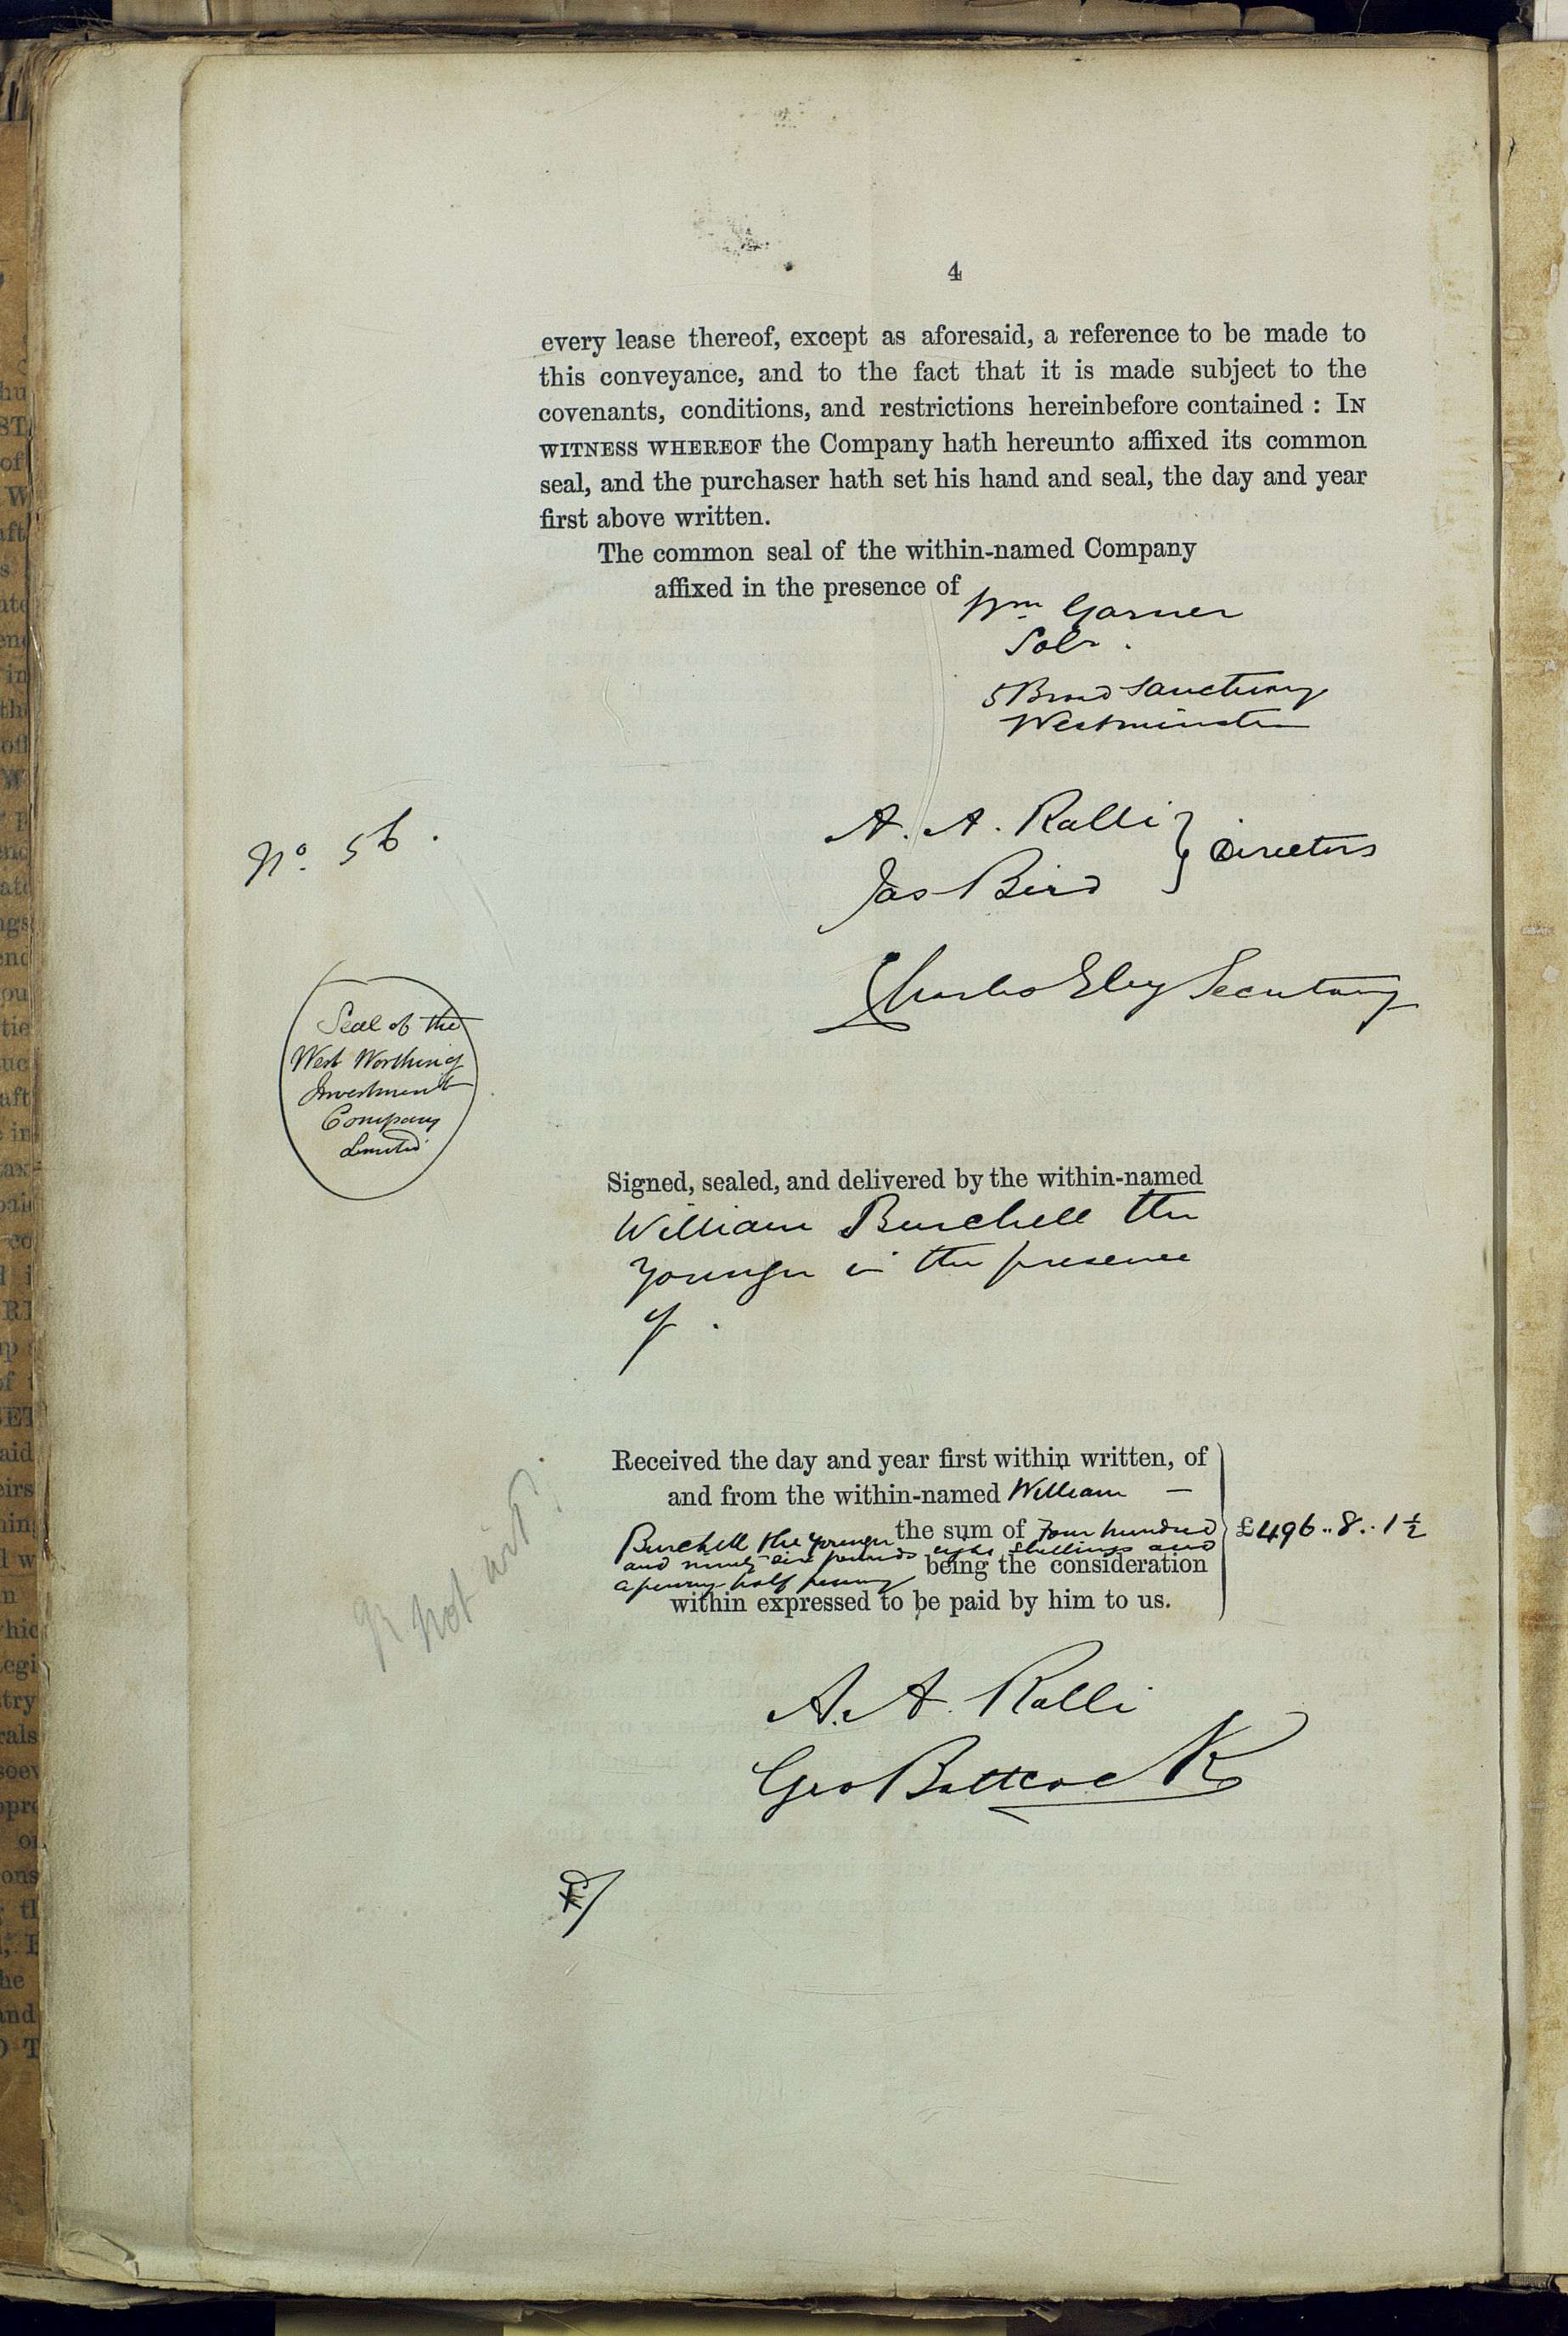 4
every lease thereof, except as aforesaid, a reference to be made to
this conveyance, and to the fact that it is made subject to the
covenants, conditions, and restrictions hereinbefore contained : IN
WITNESS WHEREOF the Company hath hereunto affixed its common
seal, and the purchaser hath set his hand and seal, the day and year
first above written.
The common seal of the within-named Company
affixed in the presence of
Wm Garner
Solr.
5 Broad Sanctuary
Westminster
No. 56.
A. A. Ralli
Jas Bird
} Directors
Charles Eley Secretary
Seal of the
West Worthing
Investment
Company
Limited
Signed, sealed, and delivered by the within-named
William Burchell the
younger in the presence
of.
Received the day and year first within written, of
and from the within-named William —
Burchell the younger the sum of Four hundred
and ninety six pounds eight shillings and
a penny half penny being the consideration
within expressed to be paid by him to us.
£496..8..1½
not
A. A. Ralli
Geo Battcock